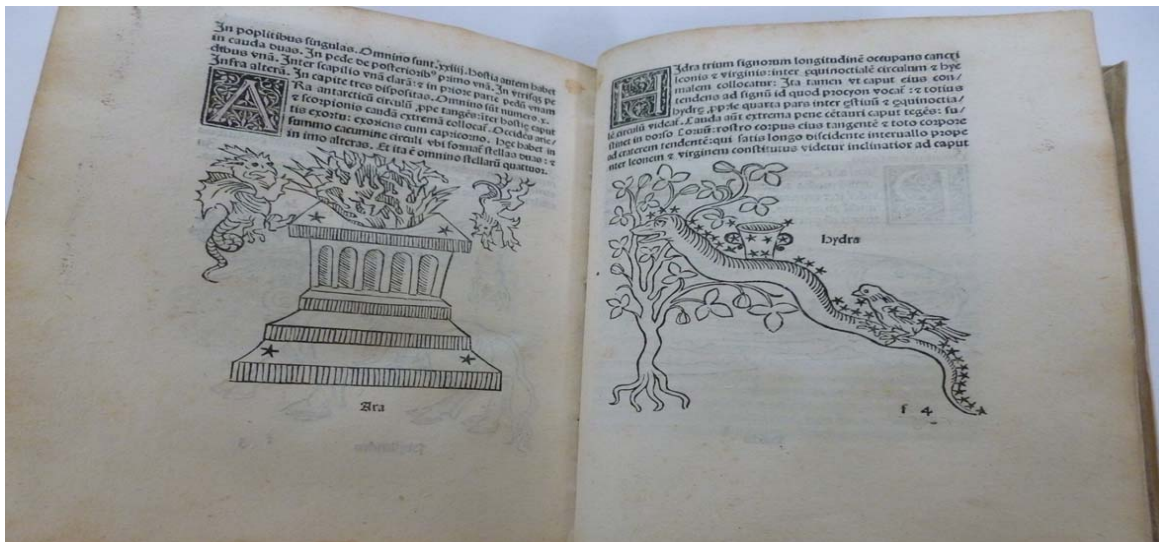 In poplitibus singulas. Omnino sunt .xxiij. hostia autem habet
in cauda duas. In pede de posteriorib⁹ primo vnã. In vtrisq; pe
dibus vnã. Inter scapilio vnã clarã: ⁊ in priore parte pedũ vnam
Infra alterã. In capite tres dispositas. Omnino sũt numero .x.
ARa antarcticũ circulũ ,ppe tangẽs: iter hostię caput
⁊ scorpionis caudã extremã collocat̃. Occidẽs arie/
tis exortu: exoriens cum capricorno. hęc habet in
summo cacumine circuli vbi format̃ stellas duas: ⁊
in imo alteras. Et ita ẽ omnino stellarũ quattuor.
Ara
HIdra trium signorum longitudinẽ occupans cancri
leonis ⁊ virginis: inter ęquinoctialẽ circulum ⁊ hye
malem collocatur: Ita tamen vt caput eius con/
tendens ad signũ id quod procyon vocat̃: ⁊ totius
hydrę ,ppe quarta pars inter ęstiuũ ⁊ ęquinoctia/
lẽ circulũ videat̃. Cauda aũt extrema pene cẽtauri caput tegẽs: su/
stinet in dorso Coruũ: rostro corpus eius tangentẽ ⁊ toto corpore
ad craterem tendentẽ: qui satis longo discidente interuallo prope
inter leonem ⁊ virginem constitutus videtur inclinatior ad caput
hydra
f 4